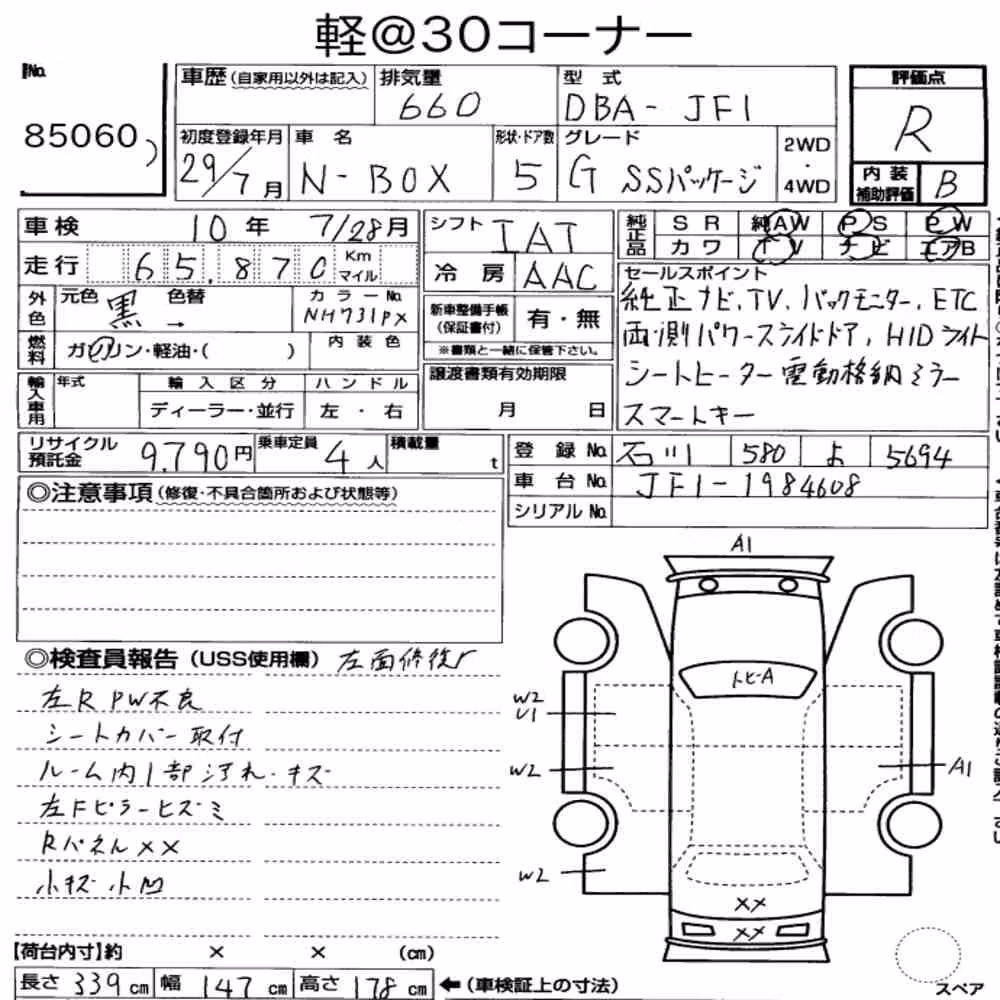 軽@30コーナー
No.
85060
車歴（自家用以外は記入）
排気量
660
型 式
DBA- JF1
評価点
R
初度登録年月
29/7 月
車 名
N-BOX
形状・ドア数
5
グレード
G SSパッケージ
2WD
・
4WD
内 装
補助評価
B
車検
10 年 7/28 月
シフト
IAT
純正品
S R
純AW
P S
P W
カ ワ
T V
ナ ビ
エアB
走行
65,870
Km
マイル
冷 房
AAC
セールスポイント
純正ナビ、TV、バックモニター、ETC
両側パワースライドドア、HIDライト
シートヒーター 電動格納ミラー
スマートキー
外色
元色
黒
→
色替
カラーNo.
NH731PX
新車整備手帳
（保証書付）
有・無
※書類と一緒に保管下さい。
燃料
ガソリン・軽油・( )
内 装 色
輸入車用
年式
輸 入 区 分
ディーラー・並行
ハ ン ド ル
左 ・ 右
譲渡書類有効期限
月 日
リサイクル
預託金
9,790円
乗車定員
4 人
積載量
t
登 録 No.
石川 580 よ 5694
車 台 No.
JF1-1984608
シリアル No.
◎注意事項（修復・不具合箇所および状態等）
◎検査員報告（USS使用欄）左面修復
左R PW不良
シートカバー取付
ルーム内1部汚れ・キズ
左Fピラーヒズミ
Rパネル××
小キズ 小凹
A1
トヒ-A
W2
U1
W2
W2
A1
××
××
【荷台内寸】約 × × (cm)
長さ 339 cm 幅 147 cm 高さ 178 cm
←（車検証上の寸法）
スペア